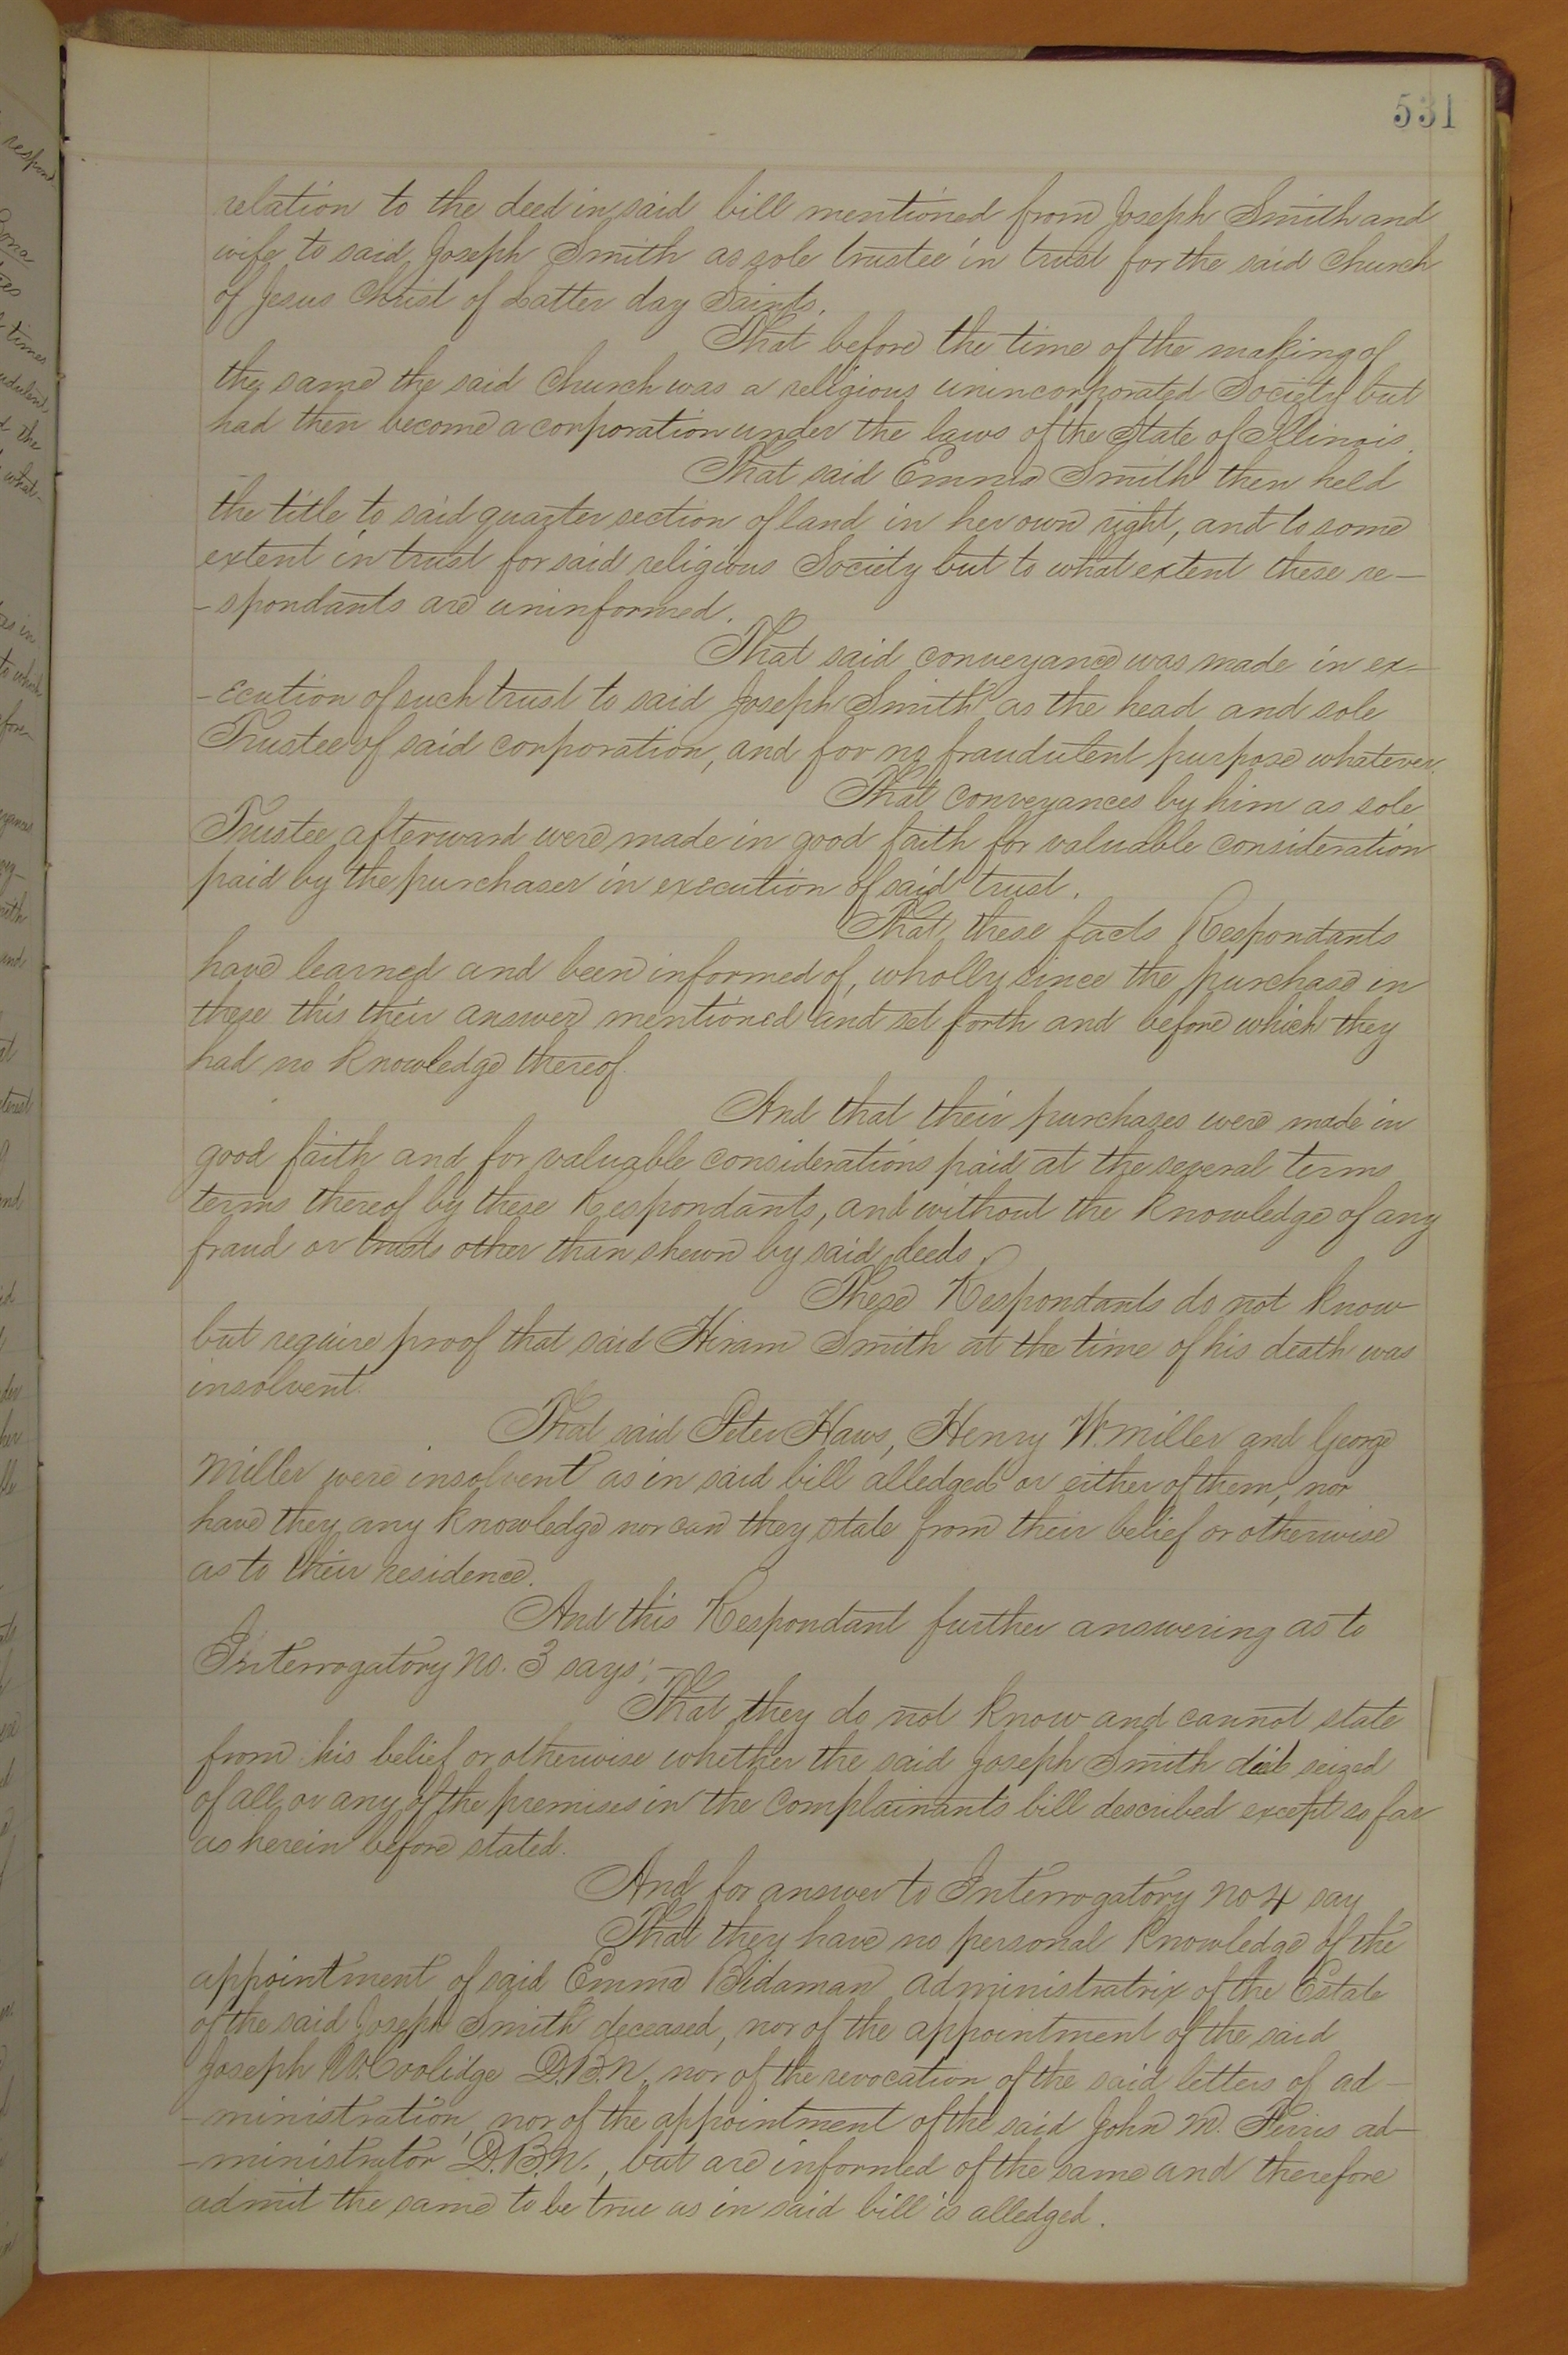 531
relation to the deed in said bill mentioned from Joseph Smith and
wife to said Joseph Smith as sole trustee in trust for the said Church
of Jesus Christ of Latter day Saints.
That before the time of the making of
the same the said Church was a religious unincorporated Society but
had then become a corporation under the laws of the State of Illinois.
That said Emma Smith then held
the title to said quarter section of land in her own right, and to some
extent in trust for said religious Society but to what extent these re-
-spondants are uninformed.
That said conveyance was made in ex-
-ecution of such trust to said Joseph Smith as the head and sole
Trustee of said corporation, and for no fraudulent purpose whatever.
That conveyances by him as sole
Trustee afterward were made in good faith for valuable consideration
paid by the purchaser in execution of said trust.
That these facts Respondants
have learned and been informed of, wholly since the purchase in
these this their answer mentioned and set forth and before which they
had no knowledge thereof.
And that their purchases were made in
good faith and for valuable considerations paid at the several terms
terms thereof by these Respondants, and without the knowledge of any
fraud or trusts other than shewn by said deeds.
These Respondants do not know
but require proof that said Hiram Smith at the time of his death was
insolvent.
That said Peter Haws, Henry W. Miller and George
Miller were insolvent as in said bill alledged or either of them, nor
have they any knowledge nor can they state from their belief or otherwise
as to their residence.
And this Respondant further answering as to
Interrogatory No. 3 says;-
That they do not know and cannot state
from his belief or otherwise whether the said Joseph Smith died seized
of all or any of the premises in the Complainants bill described except so far
as herein before stated.
And for answer to Interrogatory No 4 say
That they have no personal knowledge of the
appointment of said Emma Bidaman administratrix of the Estate
of the said Joseph Smith deceased, nor of the appointment of the said
Joseph W. Coolidge D.B.N. nor of the revocation of the said letters of ad-
-ministration, nor of the appointment of the said John M. Ferris ad-
-ministrator D.B.N., but are informed of the same and therefore
admit the same to be true as in said bill is alledged.